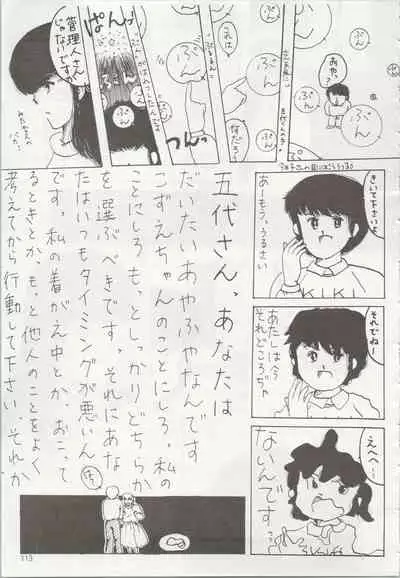 あやっ?
ぷん
ぷん
ぷん
ぷん
ぷん
これは
何だろう
ぱんっ
つんっ
管理人さん
じゃないですか
きいて下さいよ
あーもう、うるさい
KIKI
それでねー
あたしは今
それどころぢゃ
えへへー
ないんです。
五代さん、あなたは
だいたいあやふやなんです
こずえちゃんのことにしろ、私の
ことにしろ、もっとしっかりどちらか
を選ぶべきです。それにあな
たはいつもタイミングが悪いん
です。私の着がえ中とか、おこって
るときとか、もっと他人のことをよく
考えてから行動して下さい、それか
113